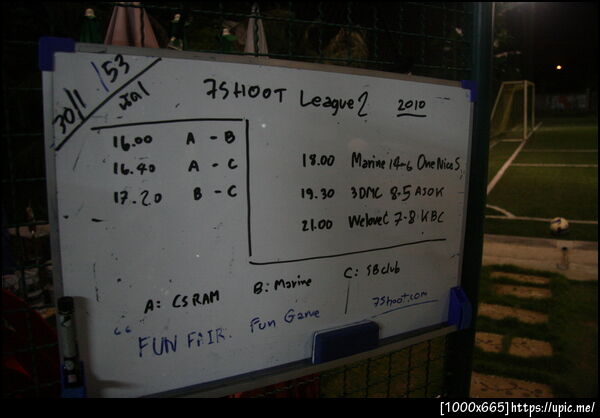 30/1/53
7SHOOT League 2 2010
16.00 A - B
16.40 A - C
17.20 B - C
18.00 Marine 14-6 OneNice S
19.30 3DMC 8-5 ASOK
21.00 Welovet 7-8 KBC
A: CSRAM B: Marine C: SBclub
7Shoot.com
“ FUN FAIR. Fun Game
[1000x665]https://upic.me/